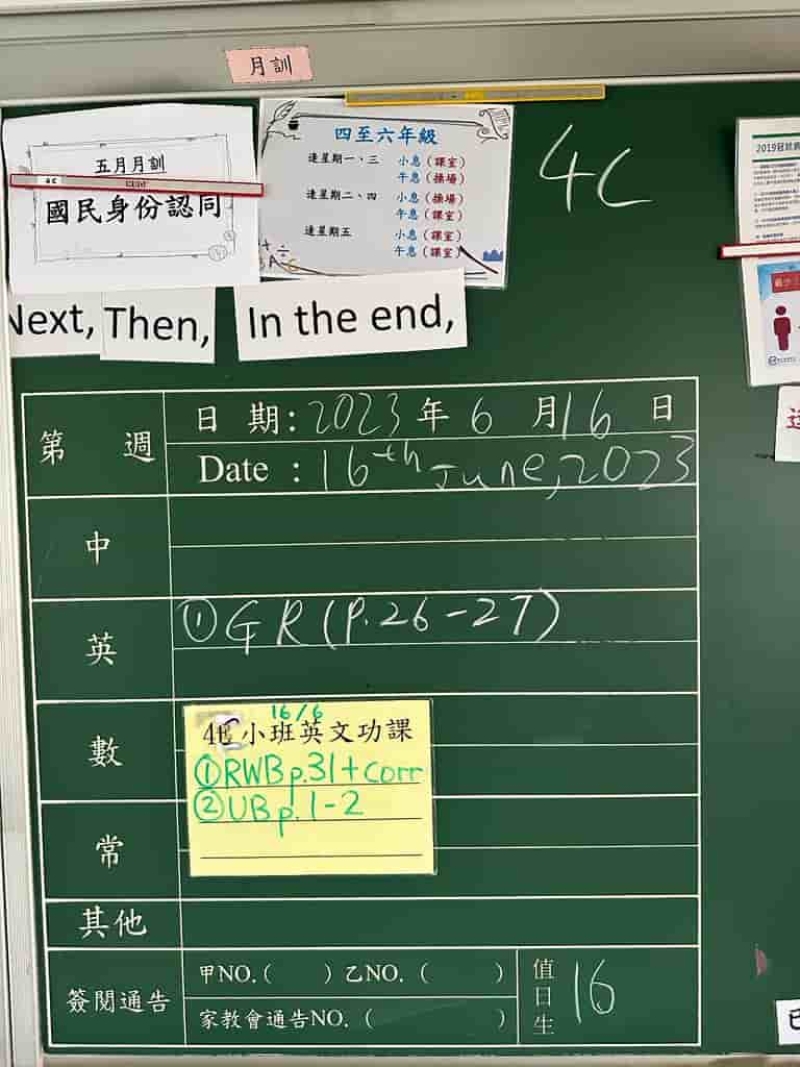 月訓
五月月訓
國民身份認同
四至六年級
逢星期一、三 小息（課室）
午息（操場）
逢星期二、四 小息（操場）
午息（課室）
逢星期五 小息（課室）
午息（課室）
4C
Next, Then, In the end,
第 週
日 期: 2023 年 6 月 16 日
Date : 16th June, 2023
中
英
① GR (P.26-27)
數
16/6
4C 小班英文功課
① RWB p.31 + corr
② UB p.1-2
常
其他
簽閱通告
甲NO. ( ) 乙NO. ( )
家教會通告NO. ( )
值日生 16